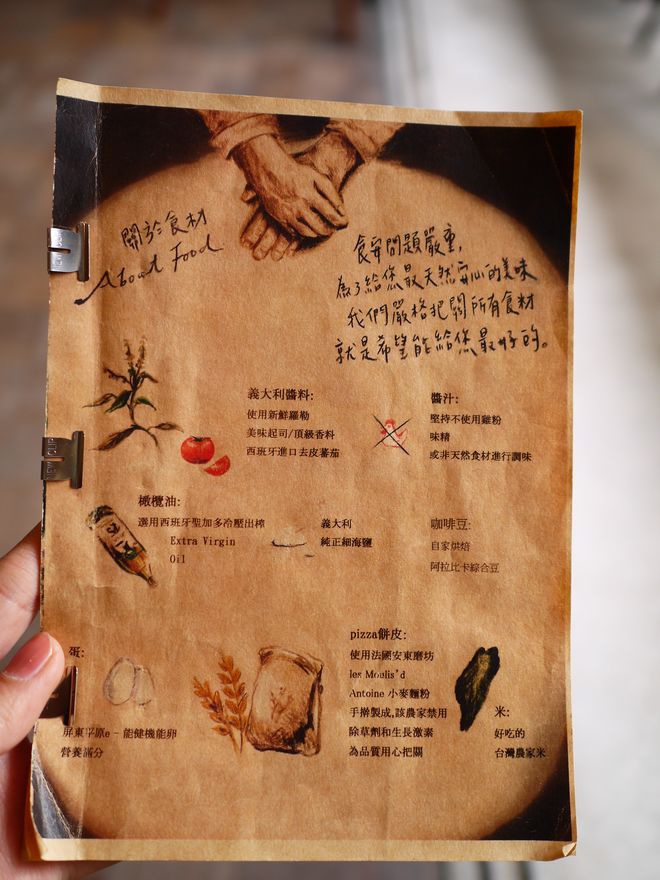 關於食材
About Food
食安問題嚴重,
為了給您最天然安心的美味
我們嚴格把關所有食材
就是希望能給您最好的。
義大利醬料:
使用新鮮羅勒
美味起司/頂級香料
西班牙進口去皮蕃茄
醬汁:
堅持不使用雞粉
味精
或非天然食材進行調味
橄欖油:
選用西班牙聖加多冷壓出榨
Extra Virgin
Oil
義大利
純正細海鹽
咖啡豆:
自家烘焙
阿拉比卡綜合豆
蛋:
屏東平原e-能健機能卵
營養滿分
pizza餅皮:
使用法國安東磨坊
les Moulis'd
Antoine 小麥麵粉
手擀製成,該農家禁用
除草劑和生長激素
為品質用心把關
米:
好吃的
台灣農家米
NEW CLIP
NEW CLIP